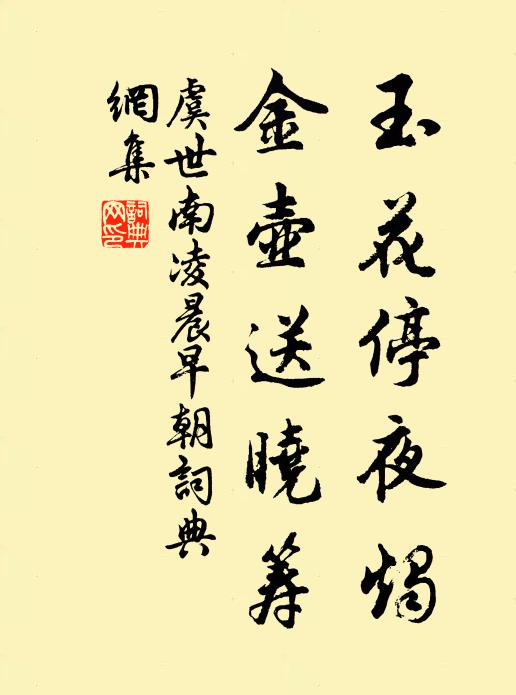 玉花停夜燭
金壺送曉筹
虞世南凌晨早朝詞典
網集
詞典
网印